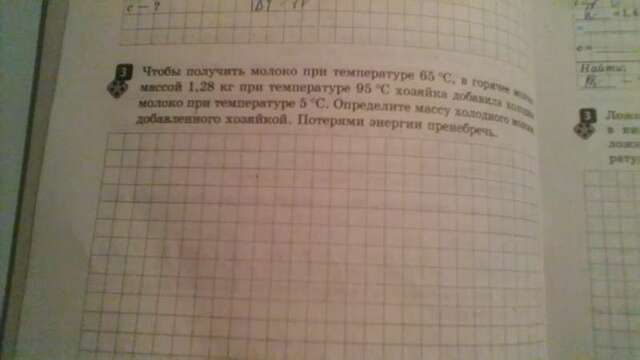 с — ?
3 Чтобы получить молоко при температуре 65 °С, в горячее молоко
массой 1,28 кг при температуре 95 °С хозяйка добавила холодное
молоко при температуре 5 °С. Определите массу холодного молока,
добавленного хозяйкой. Потерями энергии пренебречь.
Найти:
3